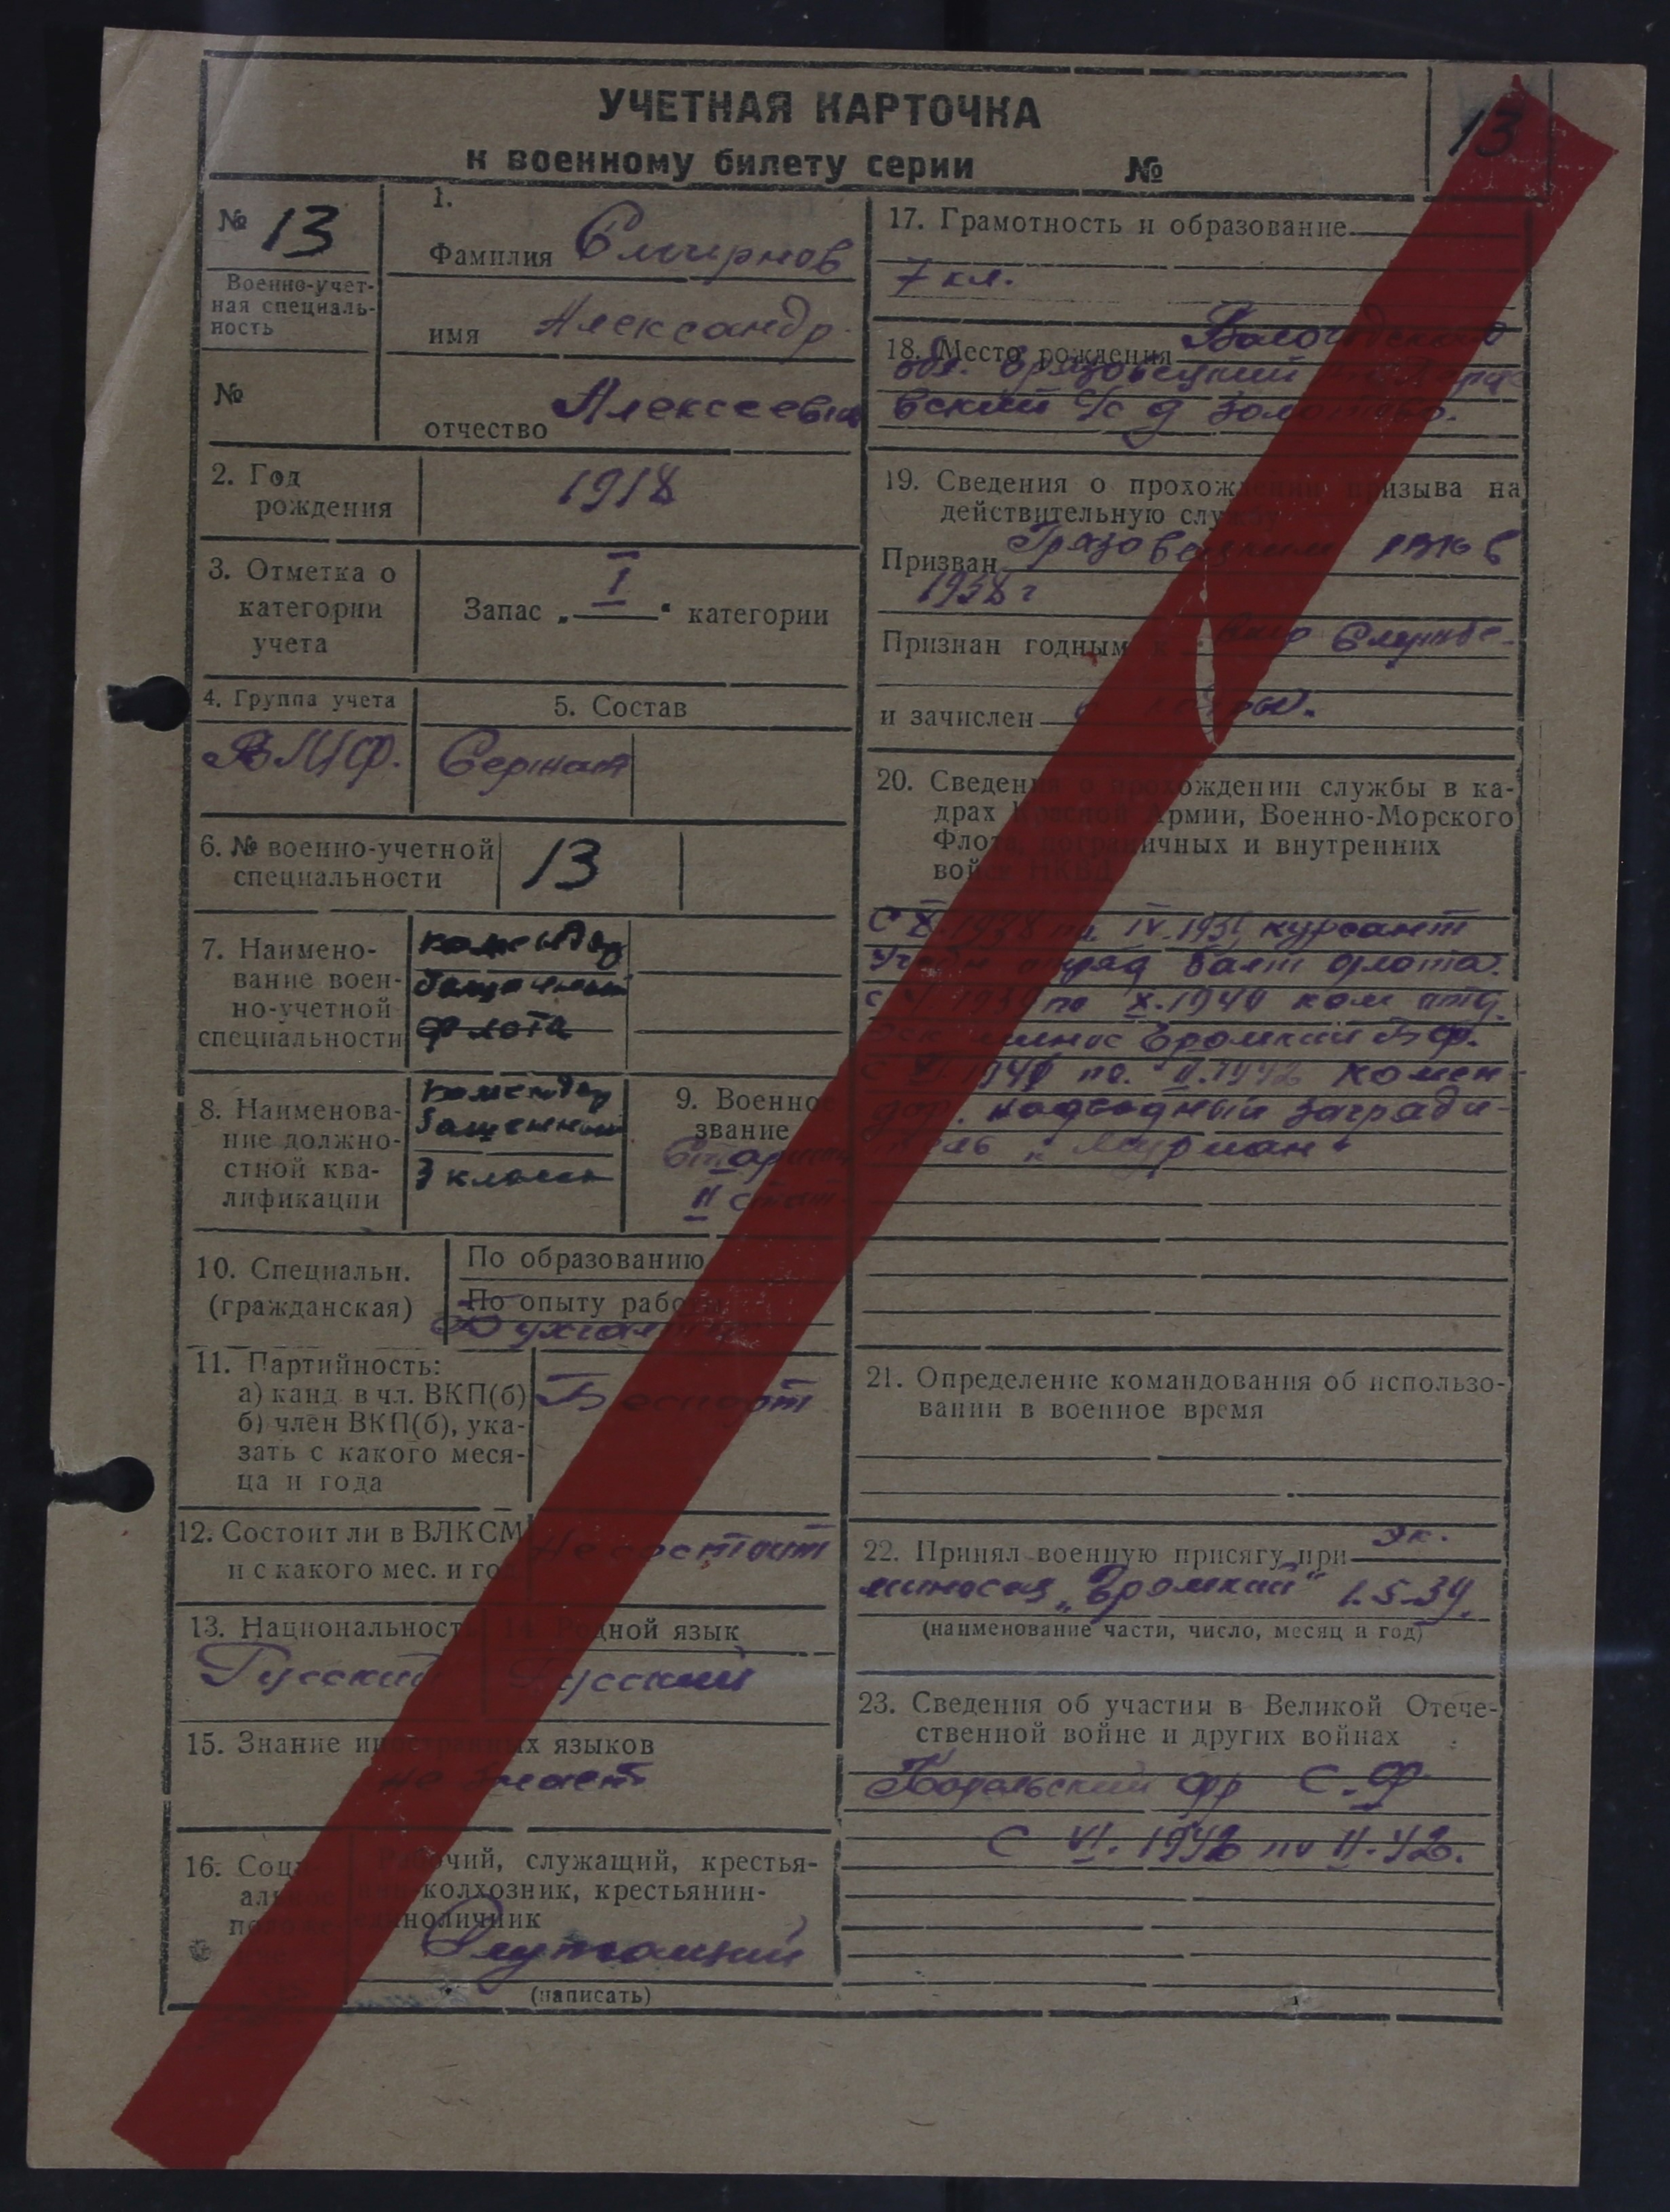 УЧЕТНАЯ КАРТОЧКА
к военному билету серии №
13
№ 13
Военно-учет-
ная специаль-
ность
№
1.
Фамилия Смирнов
имя Александр
отчество Алексеевич
2. Год
рождения
1918
3. Отметка о
категории
учета
Запас „ I " категории
4. Группа учета
ВМФ.
5. Состав
Сержант
6. № военно-учетной
специальности
13
7. Наимено-
вание воен-
но-учетной
специальности
комендор
башенный
флота
8. Наименова-
ние должно-
стной ква-
лификации
комендор
башенный
3 класса
9. Военное
звание
Старшина
II стат.
10. Специальн.
(гражданская)
По образованию
По опыту работы
11. Партийность:
а) канд в чл. ВКП(б)
б) член ВКП(б), ука-
зать с какого меся-
ца и года
Беспарт
12. Состоит ли в ВЛКСМ
и с какого мес. и год
Не состоит
13. Национальность
Русский
14. Родной язык
Русский
15. Знание иностранных языков
не знает
16. Соци-
альное
положе
Рабочий, служащий, крестья-
нин-колхозник, крестьянин-
единоличник
Служащий
(написать)
17. Грамотность и образование
7 кл.
18. Место рождения Вологодская
обл. Грязовецкий
вский с/с д
19. Сведения о прохождении призыва на
действительную службу
Призван Грязовецким РВК в
1938 г
Признан годным к службе
и зачислен в
20. Сведения о прохождении службы в ка-
драх Красной Армии, Военно-Морского
Флота, пограничных и внутренних
войск НКВД
С X. 1938 по IV. 1939 курсант
Учебн отряд Балт флота.
по X. 1940 ком отд.
Эск миннос Громкий БФ.
1940 по II.1942 комен-
дор. надводный загради-
тель „Мурман"
21. Определение командования об использо-
вании в военное время
22. Принял военную присягу при эк.
миносца „Громкий" 1.5.39.
(наименование части, число, месяц и год)
23. Сведения об участии в Великой Отече-
ственной войне и других войнах
фр С.Ф
С VI. 1942 по II.42.